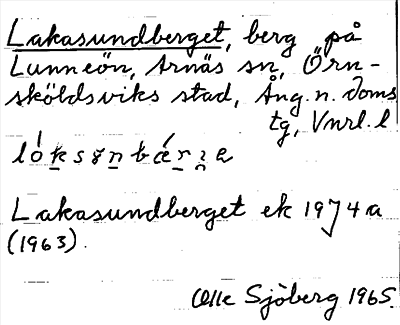 Lakasundberget, berg på
Lunneön, Arnäs sn, Örn-
sköldsviks stad, Ång. n. doms
tg, Vnrl. l
Lakasundberget ek 19J4a
(1963).
Olle Sjöberg 1965.